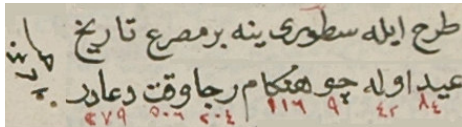 طرح ایله سطوری ینه بر مصرع تاریخ
عید اوله چو هنكام رجا وقت دعادر
٨٤ ٤٢ ٩ ١١٦ ٢٠٤ ٥٠٦ ٢٧٩